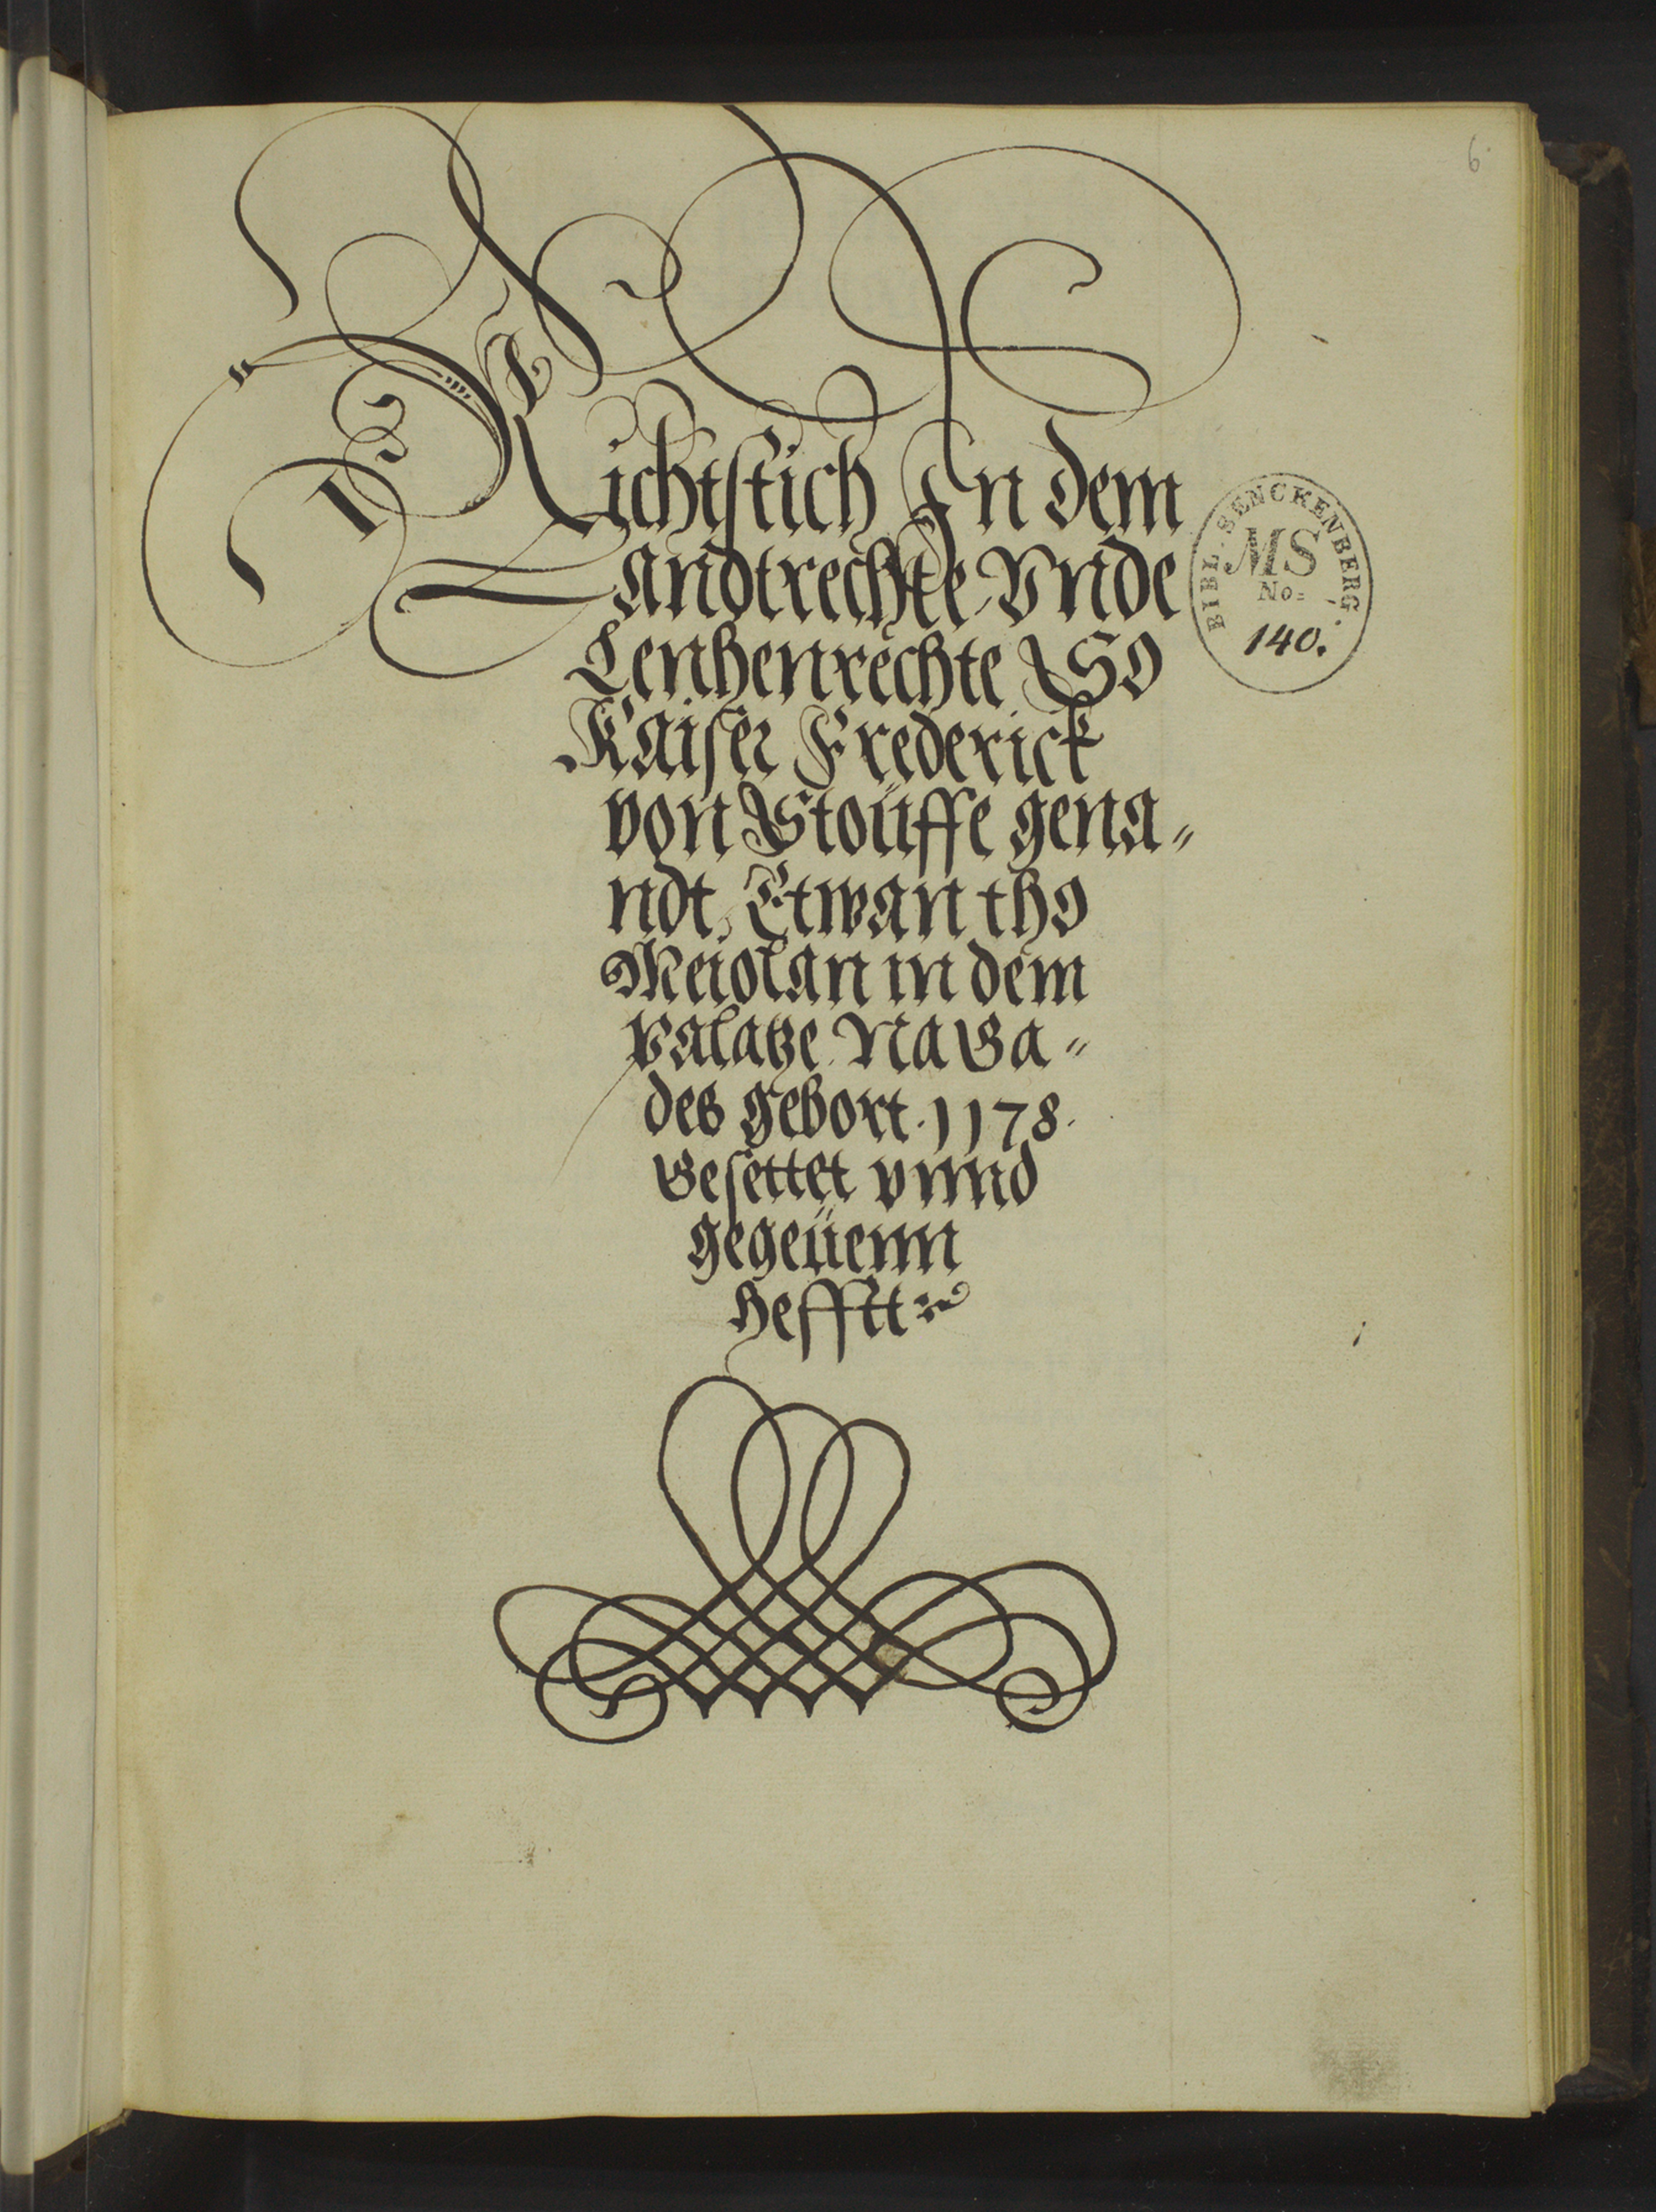 6.
Richtstich In dem
Landtrechte Vnde
Lenhenrechte So
Kaiser Frederick
von Stoüffe gena„
ndt, Etwan tho
Meiolan in dem
Palatze Na Ga„
des gebort. 1178.
Gesettet vnnd
gegeüenn
hefftt
BIBL. SENCKENBERG.
MS
No=
140.